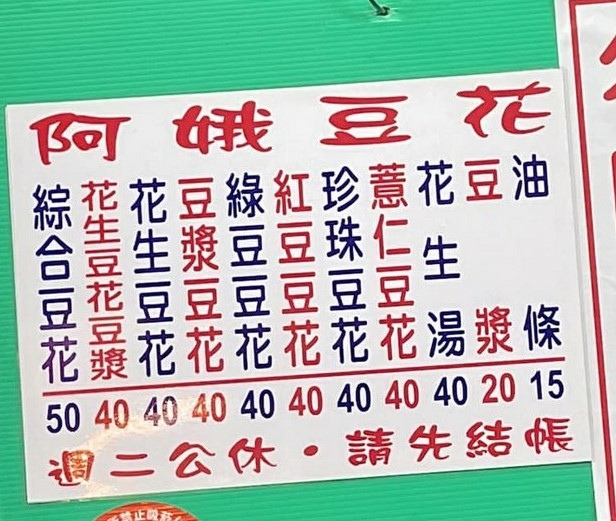 阿娥豆花
綜合豆花 50
花生豆花豆漿 40
花生豆花 40
豆漿豆花 40
綠豆豆花 40
紅豆豆花 40
珍珠豆花 40
薏仁豆花 40
花生湯 40
豆漿 20
油條 15
週二公休・請先結帳
禁止吸菸